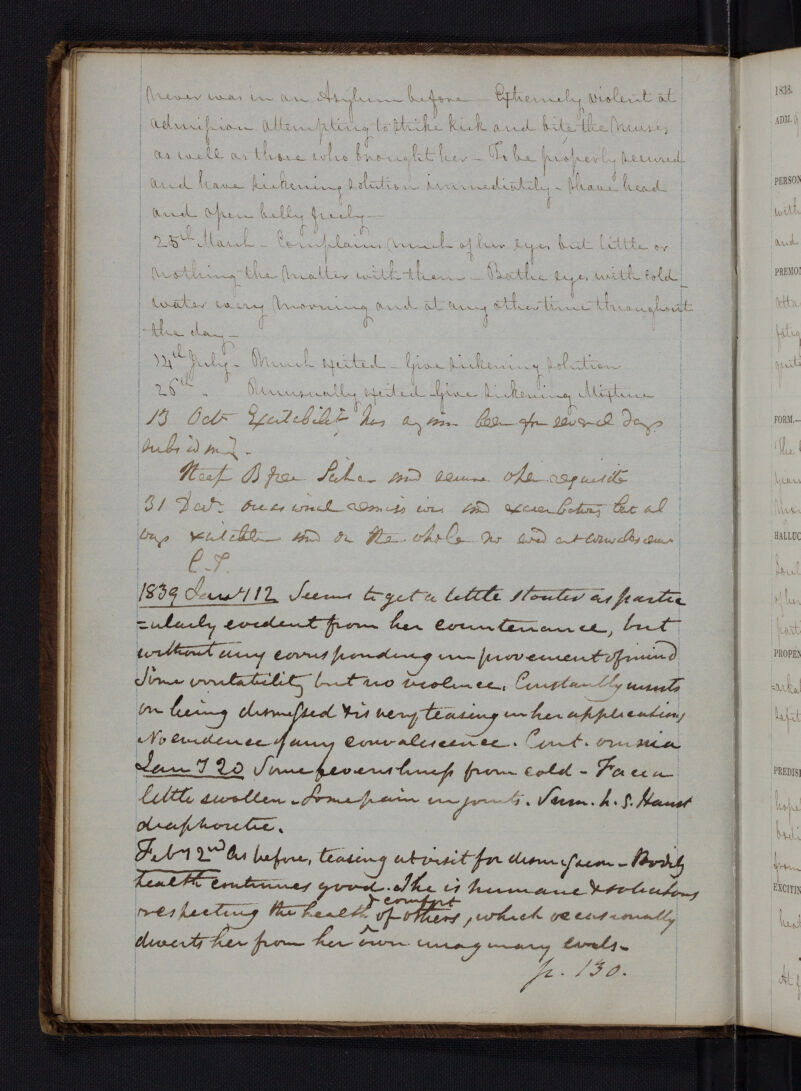 Never was in an Asylum before – Extremely violent at
admission attempting to strike kick and bite the Nurses
as well as those who brought her – To be properly secured
and have sickening solution immediately – shave head
and open belly freely –
25th March – Complains much of her eyes but little or
nothing the matter with them – Bathe eyes with cold
water every morning and at any other time throughout
the day –
14th July – Much excited – Give sickening solution
26th " Unusually excited Give sickening Mixture
13 Oct Excitability has again been for several days
subsiding.
Keep B free and secure when requisite
31 Dec. occasional remissions and exacerbations but al
ways excitable and on the whole no convalescence
1839 Jany 12 Seems to get a little stouter as partic
=ularly evident from her countenance, but
without any corresponding improvement of mind
Some irritability but no violence. Constantly insists
on being dismissed & is very teasing in her applications
No evidence of any convalescence. Cont. omnia
Jany 20 Some feverishness from cold – Face a
little swollen – Some pain in joints. Sum. h. S. Haust
diaphoretic.
Feby 2nd As before, teasing at visit for dismission – Bodily
health continues good. She is humane & solicitous
respecting the health & comfort of others, which occasionally
diverts her from her own imaginary evils –
p. 130.
1838.
ADM.
PERSON
with
and
PREMO
FORM.—
The
HALLUC
PROPEN
PREDISP
EXCITIN
At